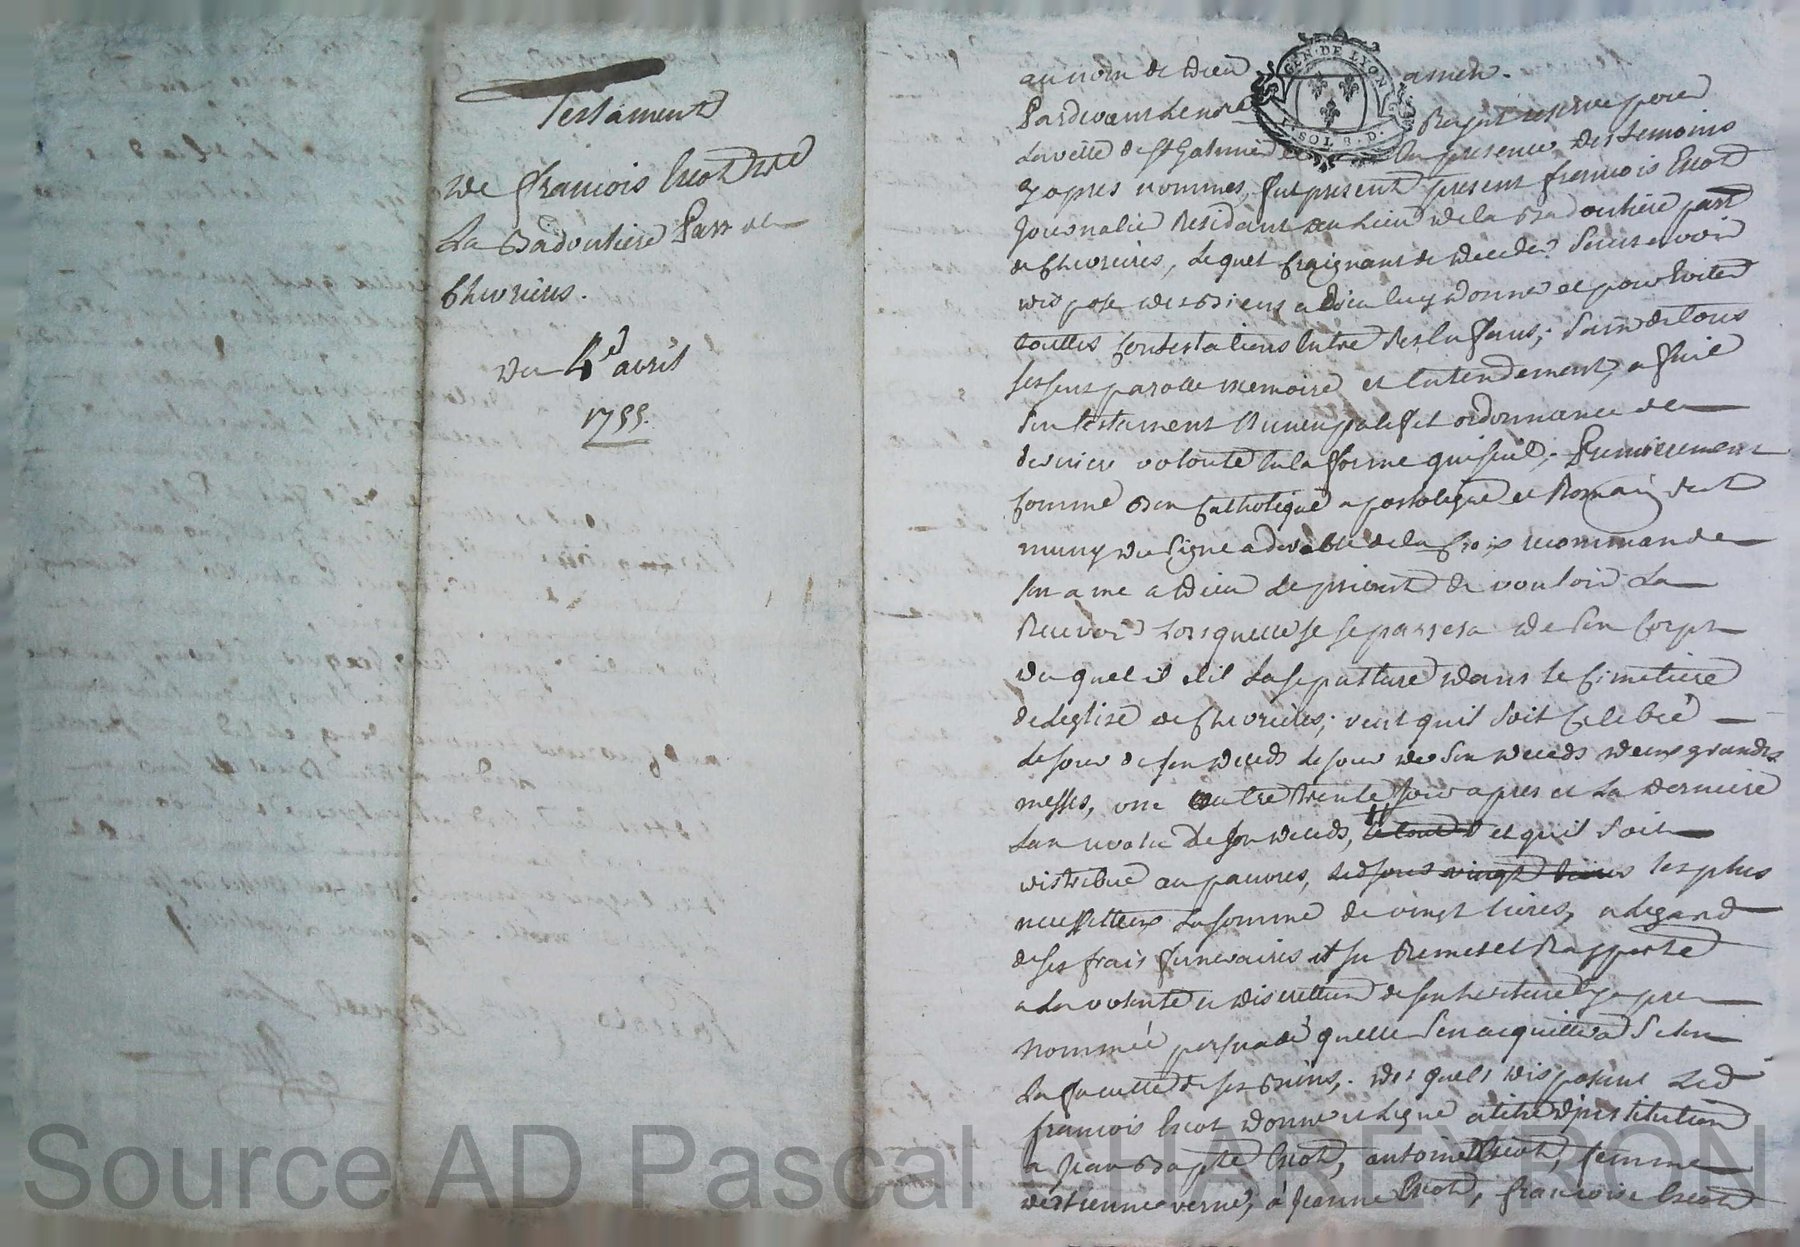 Testament
de francois Escot de
La Badoutiere Parr de
Chevrieres.
du 4e avril
1755.
GEN. DE LYON
SOLS. D.
au nom de Dieu amen.
Pardevant le no.re Royal reservé pour
la ville de St Galmier et en presence des temoins
cy apres nommes, fut present francois Escot
Journalier Residant au Lieu de la Badoutiere parr
de Chevrieres, Lequel Craignant de deceder sans avoir
disposé des Biens a Dieu luy donné et pour Eviter
touttes Contestations Entre ses Enfans; sain de tous
ses sens parolle memoire et Entendement, a fait
son testament Nuncupatif et ordonnance de
derniere volonté En la forme qui suit; Premierement
Comme Bon Catholique apostolique et Romain s'est
muny du signe adorable de la Croix recommande
son ame a Dieu Le priant de vouloir La
Recevoir Lors quelle se separera de son Corps
du quel il elit La sepulture dans le Cimetiere
de Leglise de Chevrieres; veut quil soit Celebré
Le jour de son deceds Le jour de son deceds deux grandes
messes, une autre trente jour apres et La derniere
Lan revolu de son deceds, et quil soit
distribué au pauvres, les plus
necessiteux La somme de vingt livres, a Legard
de ses frais funeraires il se Remet et Rapporte
a La volonté et discrettion de son heritiere cy apres
nommée persuadé quelle s'en acquittera selon
La faculté de ses Biens; des quels disposant Led
francois Escot donne et Legue a titre d'institution
a Jean Bapte Escot, antoinette Escot, femme
d'Etienne verne, à Jeanne Escot, francoise Escot
Source AD Pascal CHAREYRON